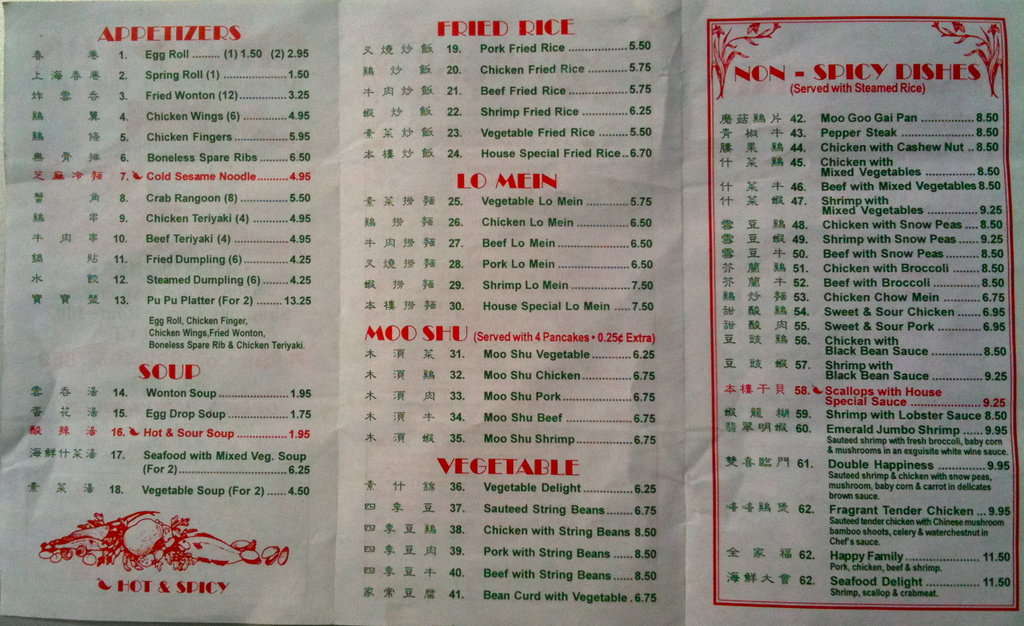 APPETIZERS
春卷 1. Egg Roll ......... (1) 1.50 (2) 2.95
上海春卷 2. Spring Roll (1) ..................... 1.50
炸雲吞 3. Fried Wonton (12)............... 3.25
鷄翼 4. Chicken Wings (6) ............... 4.95
鷄條 5. Chicken Fingers................... 5.95
無骨排 6. Boneless Spare Ribs......... 6.50
芝麻冷麵 7. Cold Sesame Noodle.......... 4.95
蟹角 8. Crab Rangoon (8) ................ 5.50
鷄串 9. Chicken Teriyaki (4) ............ 4.95
牛肉串 10. Beef Teriyaki (4) .................. 4.95
鍋貼 11. Fried Dumpling (6) .............. 4.25
水餃 12. Steamed Dumpling (6) ......... 4.25
寶寶盤 13. Pu Pu Platter (For 2) ........ 13.25
Egg Roll, Chicken Finger,
Chicken Wings,Fried Wonton,
Boneless Spare Rib & Chicken Teriyaki.
SOUP
雲吞湯 14. Wonton Soup ....................... 1.95
蛋花湯 15. Egg Drop Soup .................... 1.75
酸辣湯 16. Hot & Sour Soup ................ 1.95
海鮮什菜湯 17. Seafood with Mixed Veg. Soup
(For 2)................................... 6.25
素菜湯 18. Vegetable Soup (For 2) ...... 4.50
HOT & SPICY
FRIED RICE
叉燒炒飯 19. Pork Fried Rice .................. 5.50
鷄炒飯 20. Chicken Fried Rice ............ 5.75
牛肉炒飯 21. Beef Fried Rice .................. 5.75
蝦炒飯 22. Shrimp Fried Rice .............. 6.25
素菜炒飯 23. Vegetable Fried Rice ......... 5.50
本樓炒飯 24. House Special Fried Rice.. 6.70
LO MEIN
素菜撈麵 25. Vegetable Lo Mein .............. 5.75
鷄撈麵 26. Chicken Lo Mein ................ 6.50
牛肉撈麵 27. Beef Lo Mein ...................... 6.50
叉燒撈麵 28. Pork Lo Mein ...................... 6.50
蝦撈麵 29. Shrimp Lo Mein .................. 7.50
本樓撈麵 30. House Special Lo Mein ..... 7.50
MOO SHU (Served with 4 Pancakes • 0.25¢ Extra)
木須菜 31. Moo Shu Vegetable ............ 6.25
木須鷄 32. Moo Shu Chicken............... 6.75
木須肉 33. Moo Shu Pork ..................... 6.75
木須牛 34. Moo Shu Beef ..................... 6.75
木須蝦 35. Moo Shu Shrimp ................. 6.75
VEGETABLE
素什錦 36. Vegetable Delight ................ 6.25
四季豆 37. Sauteed String Beans......... 6.75
四季豆鷄 38. Chicken with String Beans 8.50
四季豆肉 39. Pork with String Beans ...... 8.50
四季豆牛 40. Beef with String Beans ...... 8.50
家常豆腐 41. Bean Curd with Vegetable . 6.75
NON - SPICY DISHES
(Served with Steamed Rice)
蘑菇鷄片 42. Moo Goo Gai Pan .................... 8.50
青椒牛 43. Pepper Steak .......................... 8.50
腰果鷄 44. Chicken with Cashew Nut .. 8.50
什菜鷄 45. Chicken with
Mixed Vegetables .............. 8.50
什菜牛 46. Beef with Mixed Vegetables 8.50
什菜蝦 47. Shrimp with
Mixed Vegetables ............. 9.25
雪豆鷄 48. Chicken with Snow Peas .... 8.50
雪豆蝦 49. Shrimp with Snow Peas ...... 9.25
雪豆牛 50. Beef with Snow Peas .......... 8.50
芥蘭鷄 51. Chicken with Broccoli ......... 8.50
芥蘭牛 52. Beef with Broccoli ............... 8.50
鷄炒麵 53. Chicken Chow Mein ............ 6.75
甜酸鷄 54. Sweet & Sour Chicken ........ 6.95
甜酸肉 55. Sweet & Sour Pork .............. 6.95
豆豉鷄 56. Chicken with
Black Bean Sauce ............. 8.50
豆豉蝦 57. Shrimp with
Black Bean Sauce ............. 9.25
本樓干貝 58. Scallops with House
Special Sauce ................... 9.25
蝦龍糊 59. Shrimp with Lobster Sauce 8.50
翡翠明蝦 60. Emerald Jumbo Shrimp ...... 9.95
Sauteed shrimp with fresh broccoli, baby corn
& mushrooms in an exguisite white wine sauce.
雙喜臨門 61. Double Happiness ............... 9.95
Sauteed shrimp & chicken with snow peas,
mushroom, baby corn & carrot in delicates
brown sauce.
62. Fragrant Tender Chicken ... 9.95
Sauteed tender chicken with Chinese mushroom
bamboo shoots, celery & waterchestnut in
Chef's sauce.
全家福 62. Happy Family .................... 11.50
Pork, chicken, beef & shrimp.
海鮮大會 62. Seafood Delight ................ 11.50
Shrimp, scallop & crabmeat.